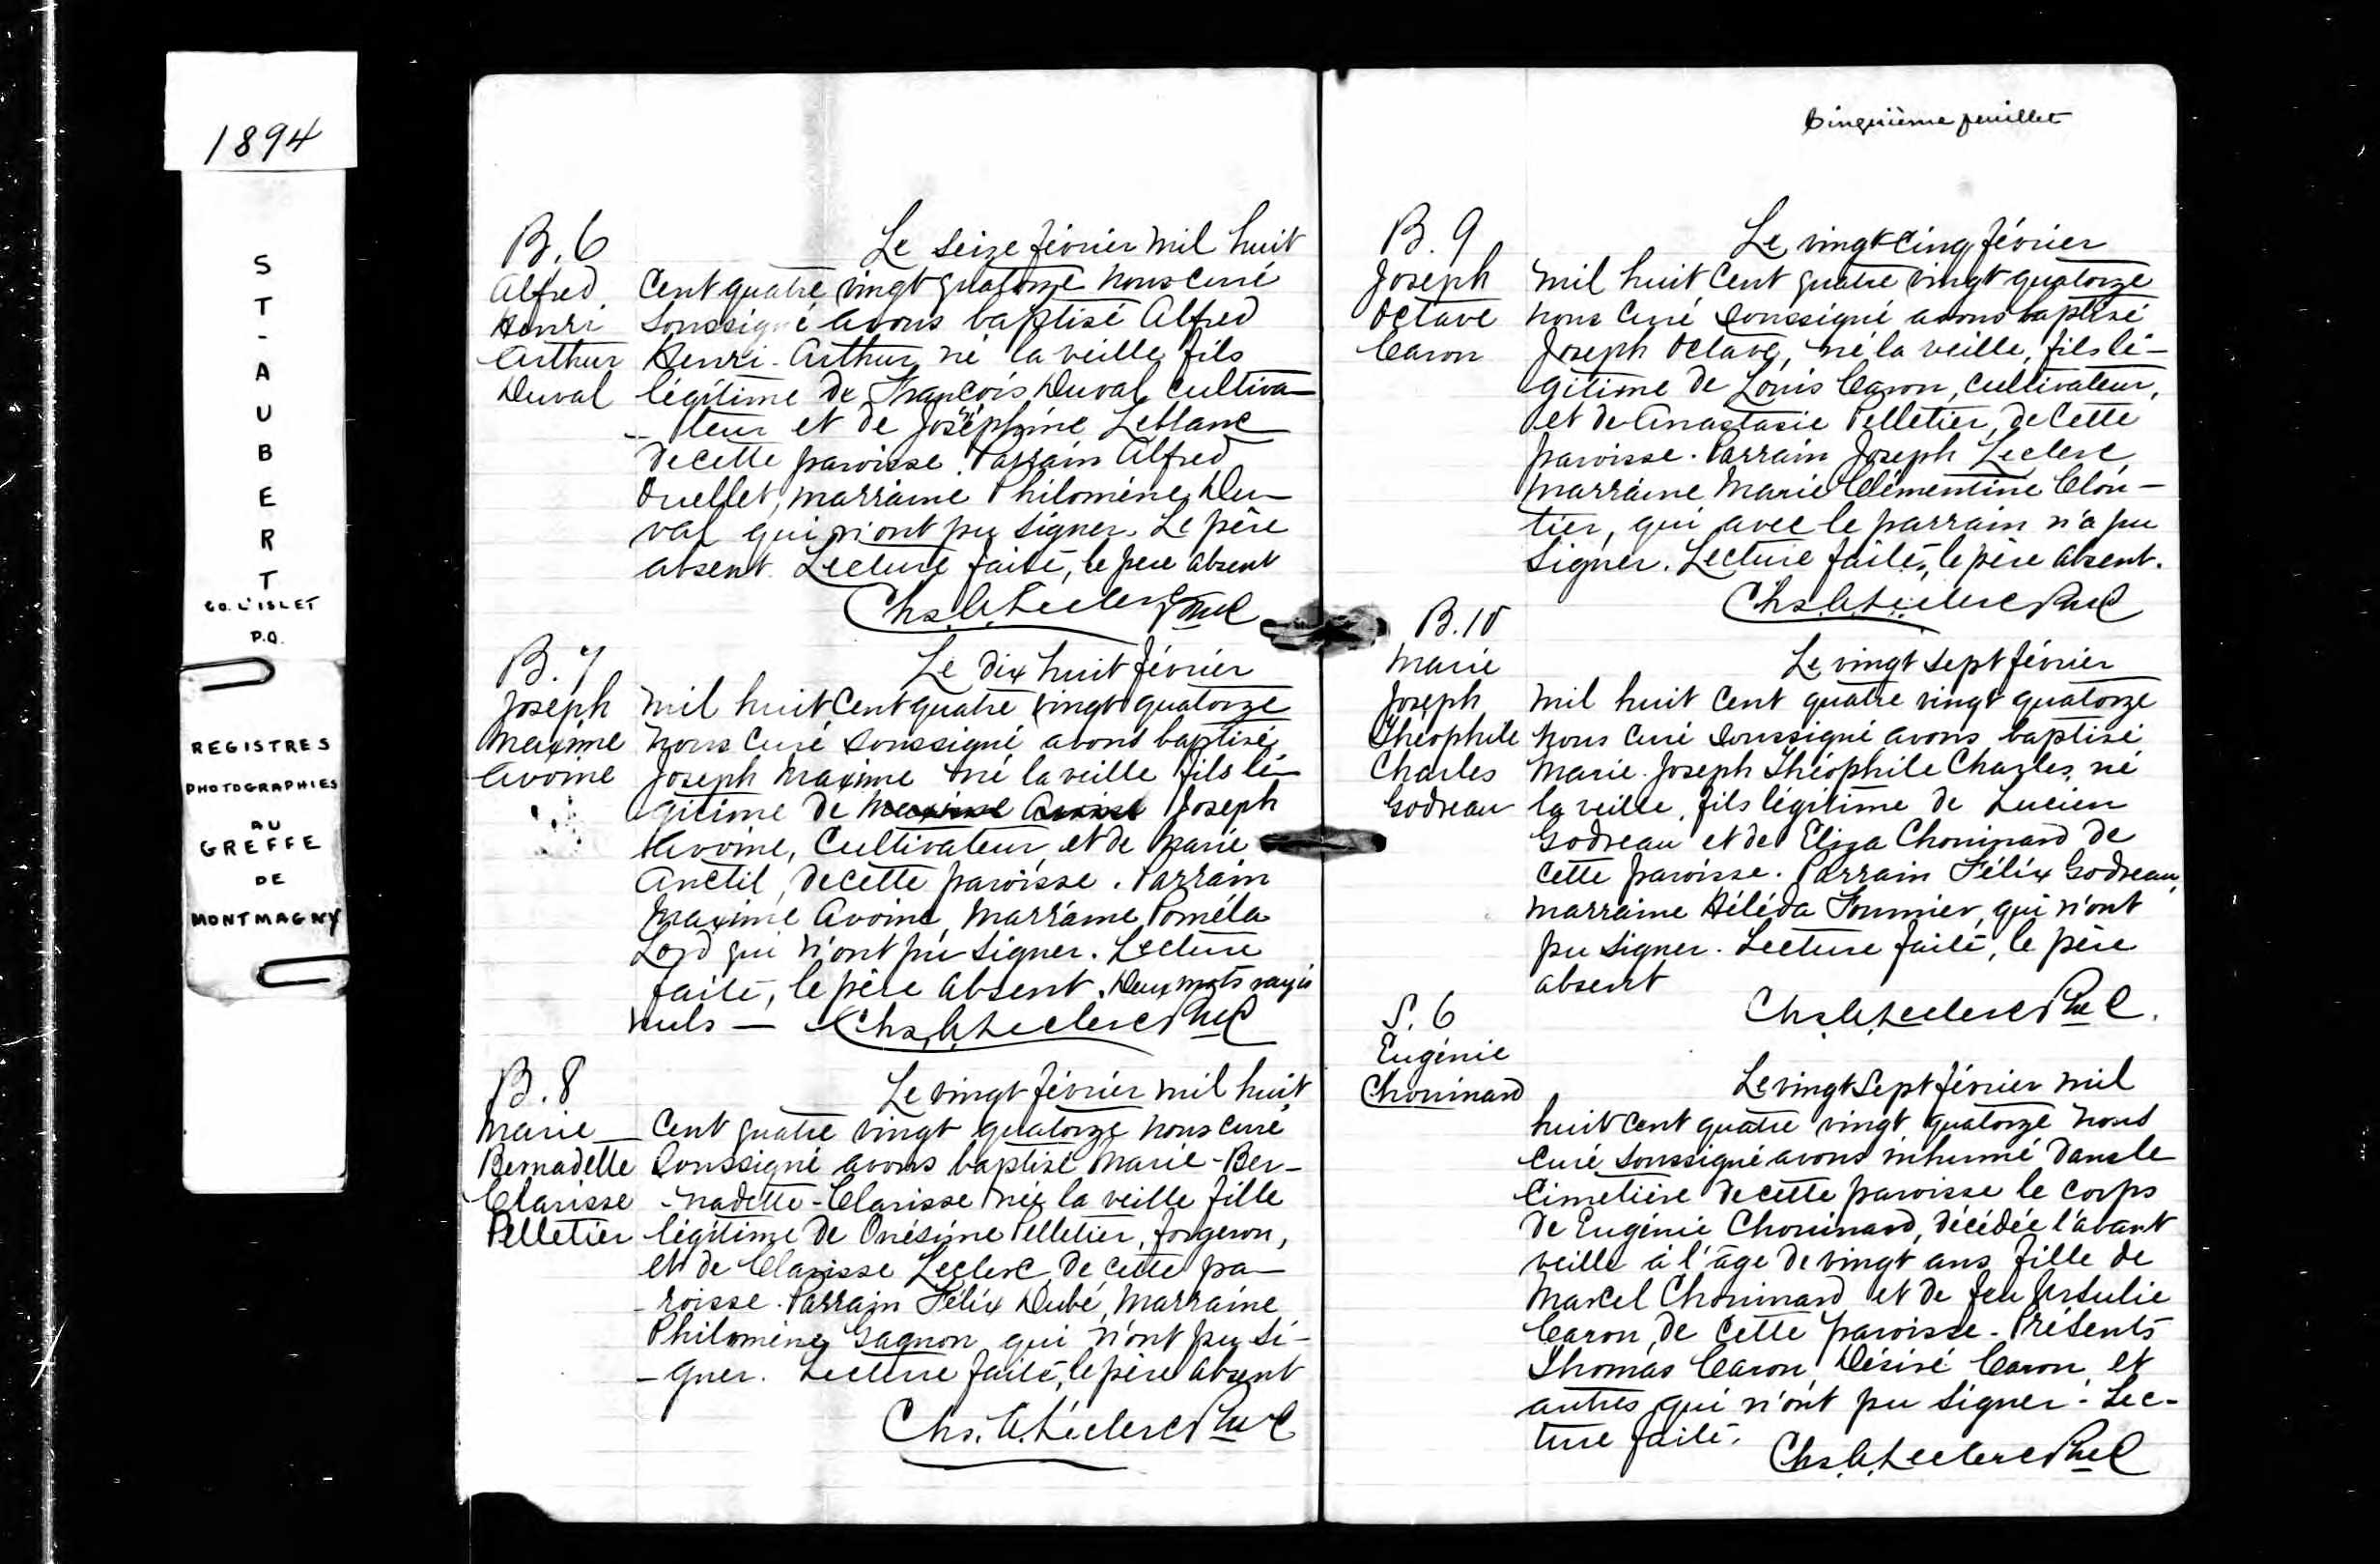 1894
S
T
-
A
U
B
E
R
T
CO. L'ISLET
P.Q.
REGISTRES
PHOTOGRAPHIES
AU
GREFFE
DE
MONTMAGNY
B. 6
Alfred
Henri
Arthur
Duval
Le seize février mil huit
cent quatre vingt quatorze nous curé
soussigné avons baptisé Alfred
Henri-Arthur né la veille fils
légitime de François Duval cultiva-
-teur et de Joséphine Leblanc
de cette paroisse. Parrain Alfred
Ouellet, marraine Philomène Du-
val qui n'ont pu signer. Le père
absent. Lecture faite, le père absent
Chs. A. Leclerc Ptre C
B. 7
Joseph
Maxime
Avoine
Le dix huit février
mil huit cent quatre vingt quatorze
nous curé soussigné avons baptisé
Joseph Maxime né la veille fils lé-
gitime de Maxime Avoine Joseph
Avoine, cultivateur, et de Marie
Anctil, de cette paroisse. Parrain
Maxime Avoine, marraine Poméla
Lord qui n'ont pu signer. Lecture
faite, le père absent. Deux mots rayés
nuls — Chs. A. Leclerc Ptre C
B. 8
Marie
Bernadette
Clarisse
Pelletier
Le vingt février mil huit
cent quatre vingt quatorze nous curé
soussigné avons baptisé Marie-Ber-
-nadette-Clarisse née la veille fille
légitime de Onésime Pelletier, forgeron,
et de Clarisse Leclerc, de cette pa-
-roisse. Parrain Félix Dubé, marraine
Philomène Gagnon qui n'ont pu si-
-gner. Lecture faite, le père absent
Chs. A. Leclerc Ptre C
Cinquième feuillet
B. 9
Joseph
Octave
Caron
Le vingt cinq février
mil huit cent quatre vingt quatorze
nous curé soussigné avons baptisé
Joseph Octave, né la veille, fils lé-
gitime de Louis Caron, cultivateur,
et de Anastasie Pelletier, de cette
paroisse. Parrain Joseph Leclerc,
marraine Marie Clémentine Clou-
tier, qui avec le parrain n'a pu
signer. Lecture faite, le père absent.
Chs. A. Leclerc Ptre C
B. 10
Marie
Joseph
Théophile
Charles
Godreau
Le vingt sept février
mil huit cent quatre vingt quatorze
nous curé soussigné avons baptisé
Marie-Joseph Théophile Charles, né
la veille, fils légitime de Lucien
Godreau et de Eliza Chouinard de
cette paroisse. Parrain Félix Godreau,
marraine Héléda Fournier, qui n'ont
pu signer. Lecture faite, le père
absent
Chs. A. Leclerc Ptre C.
S. 6
Eugénie
Chouinard
Le vingt sept février mil
huit cent quatre vingt quatorze nous
curé soussigné avons inhumé dans le
cimetière de cette paroisse le corps
de Eugénie Chouinard, décédée l'avant
veille à l'âge de vingt ans, fille de
Marcel Chouinard et de feu Ursulie
Caron, de cette paroisse. Présents
Thomas Caron, Désiré Caron, et
autres qui n'ont pu signer. Lec-
ture faite.
Chs. A. Leclerc Ptre C